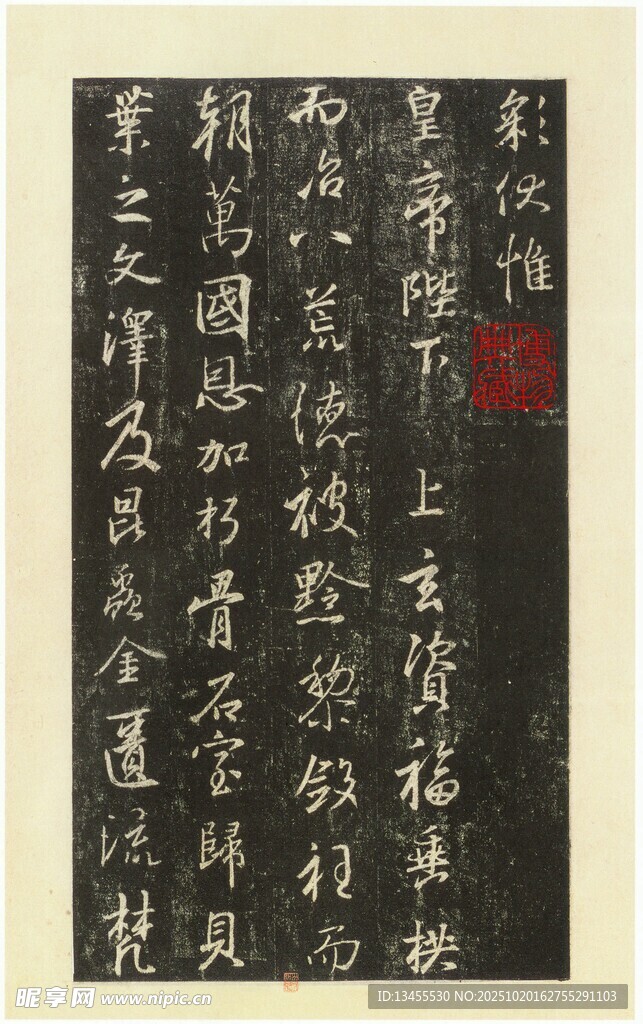 彩伏惟
皇帝陛下 上玄資福垂拱
而治八荒德被黔黎斂衽而
朝萬國恩加朽骨石室歸貝
葉之文澤及昆蟲金匱流梵
博物典藏
昵享网 www.nipic.cn
ID:13455530 NO:20251020162755291103